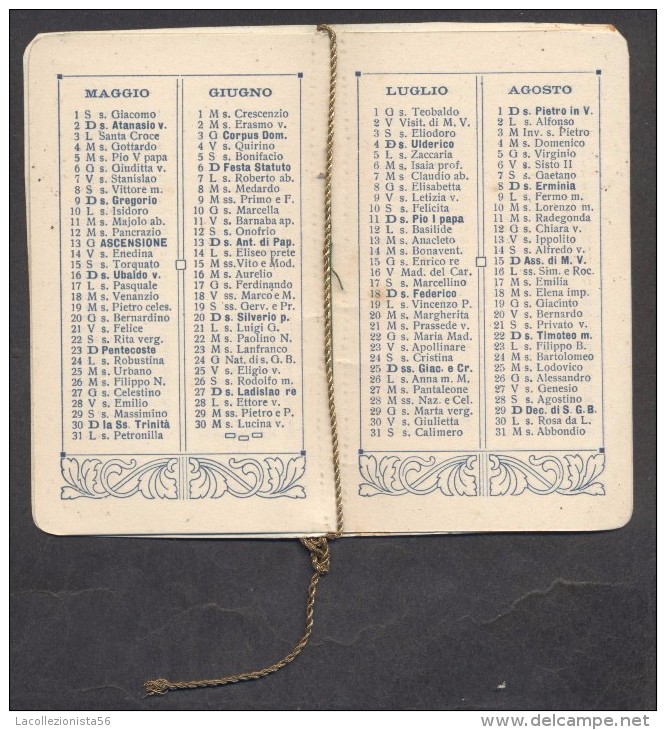 MAGGIO
1 S s. Giacomo
2 D s. Atanasio v.
3 L Santa Croce
4 M s. Gottardo
5 M s. Pio V papa
6 G s. Giuditta v.
7 V s. Stanislao
8 S s. Vittore m.
9 D s. Gregorio
10 L s. Isidoro
11 M s. Majolo ab.
12 M s. Pancrazio
13 G ASCENSIONE
14 V s. Enedina
15 S s. Torquato
16 D s. Ubaldo v.
17 L s. Pasquale
18 M s. Venanzio
19 M s. Pietro celes.
20 G s. Bernardino
21 V s. Felice
22 S s. Rita verg.
23 D Pentecoste
24 L s. Robustina
25 M s. Urbano
26 M s. Filippo N.
27 G s. Celestino
28 V s. Emilio
29 S s. Massimino
30 D la Ss. Trinità
31 L s. Petronilla
GIUGNO
1 M s. Crescenzio
2 M s. Erasmo v.
3 G Corpus Dom.
4 V s. Quirino
5 S s. Bonifacio
6 D Festa Statuto
7 L s. Roberto ab.
8 M s. Medardo
9 M ss. Primo e F.
10 G s. Marcella
11 V s. Barnaba ap.
12 S s. Onofrio
13 D s. Ant. di Pap.
14 L s. Eliseo prete
15 M ss. Vito e Mod.
16 M s. Aurelio
17 G s. Ferdinando
18 V ss. Marco e M.
19 S ss. Gerv. e Pr.
20 D s. Silverio p.
21 L s. Luigi G.
22 M s. Paolino N.
23 M s. Lanfranco
24 G Nat. di s. G. B.
25 V s. Eligio v.
26 S s. Rodolfo m.
27 D s. Ladislao re
28 L s. Ettore v.
29 M ss. Pietro e P.
30 M s. Lucina v.
LUGLIO
1 G s. Teobaldo
2 V Visit. di M. V.
3 S s. Eliodoro
4 D s. Ulderico
5 L s. Zaccaria
6 M s. Isaia prof.
7 M s. Claudio ab.
8 G s. Elisabetta
9 V s. Letizia v.
10 S s. Felicita
11 D s. Pio I papa
12 L s. Basilide
13 M s. Anacleto
14 M s. Bonavent.
15 G s. Enrico re
16 V Mad. del Car.
17 S s. Marcellino
18 D s. Federico
19 L s. Vincenzo P.
20 M s. Margherita
21 M s. Prassede v.
22 G s. Maria Mad.
23 V s. Apollinare
24 S s. Cristina
25 D ss. Giac. e Cr.
26 L s. Anna m. M.
27 M s. Pantaleone
28 M ss. Naz. e Cel.
29 G s. Marta verg.
30 V s. Giulietta
31 S s. Calimero
AGOSTO
1 D s. Pietro in V.
2 L s. Alfonso
3 M Inv. s. Pietro
4 M s. Domenico
5 G s. Virginio
6 V s. Sisto II
7 S s. Gaetano
8 D s. Erminia
9 L s. Fermo m.
10 M s. Lorenzo m.
11 M s. Radegonda
12 G s. Chiara v.
13 V s. Ippolito
14 S s. Alfredo v.
15 D Ass. di M. V.
16 L ss. Sim. e Roc.
17 M s. Emilia
18 M s. Elena imp.
19 G s. Giacinto
20 V s. Bernardo
21 S s. Privato v.
22 D s. Timoteo m.
23 L s. Filippo B.
24 M s. Bartolomeo
25 M s. Lodovico
26 G s. Alessandro
27 V s. Genesio
28 S s. Agostino
29 D Dec. di S. G. B.
30 L s. Rosa da L.
31 M s. Abbondio
Lacollezionista56
www.delcampe.net